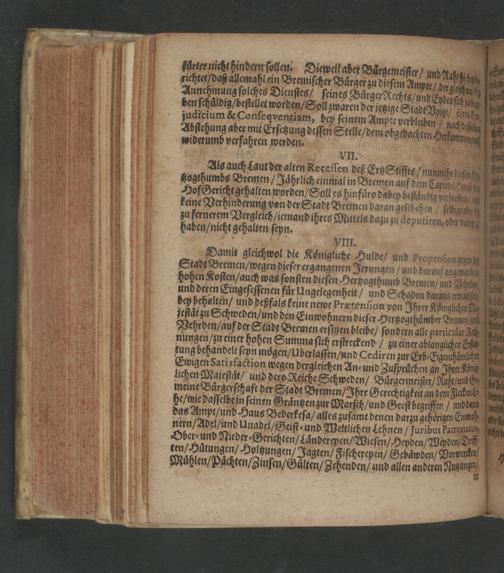 fürter nicht hindern sollen. Dieweil aber Bürgemeister / und Raht
richtet / daß allemahl ein Bremischer Bürger zu diesem Ampte / der gleich
Annehmung solches Dienstes / seines Bürger Rechts / und Eydes sich
ben schüldig / bestellet worden / Soll zwaren der ietzige Stadt Voigt / citra
judicium & Conseqventiam, bey seinem Ampte verbleiben / nach dessen
Abstehung aber mit Ersetzung dessen Stelle / dem obgedachten Herkommen
widerumb verfahren werden.
VII.
Als auch Laut der alten Recessen deß Ertz Stiffts / nunmehr dieses
tzogthumbs Bremen / Jährlich einmal in Bremen auf dem Capitel Hause
HofGericht gehalten worden / Soll es hinfüro dabey beständig verbleiben
keine Verhinderung von der Stadt Bremen daran geschehen /
zu fernerem Vergleich / iemand ihres Mittels dazu zu deputiren, oder dabey
haben / nicht gehalten seyn.
VIII.
Damit gleichwol die Königliche Hulde / und Propension gegen die
Stadt Bremen / wegen dieser ergangenen Irrungen / und darauf angewandten
hohen Kosten / auch was sonsten diesen Hertzogthumb Bremen / und Vehrden /
und deren Eingesessenen für Ungelegenheit / und Schaden daraus erwachsen
bey behalten / und deßfals keine newe Prætension von Ihrer Königlichen
jestät zu Schweden / und den Einwohnern dieser Hertzogthümber Bremen und
Vehrden / auf der Stadt Bremen ersitzen bleibe / sondern alle particular
nungen / zu einer hohen Summa sich erstreckend / zu einer ablanglichen
tung behandelt seyn mögen / Uberlassen / und Cediren zur Erb-Eigenthümlichen
Ewigen Satisfaction wegen dergleichen An- und Zusprüchen an Ihrer
lichen Majestät / und dero Reiche Schweden / Bürgermeister / Raht / und
meine Bürgerschafft der Stadt Bremen / Ihre Gerechtigkeit an dem Flecken
he / wie dasselbe in seinen Gräntzen zur Marsch / und Geest begriffen / und dann
das Ampt / und Haus Bederkesa / alles zusamt denen darzu gehörigen
nern / Adel / und Unadel / Geist- und Weltlichen Lehnen / Juribus Patronatus
Ober- und Nieder-Gerichten / Ländereyen / Wiesen / Heyden / Weyden /
ten / Hütungen / Holtzungen / Jagten / Fischereyen / Gebäwden / Vorwercken /
Mühlen / Pächten / Zinsen / Gülten / Zehenden / und allen anderen Nutzungen /